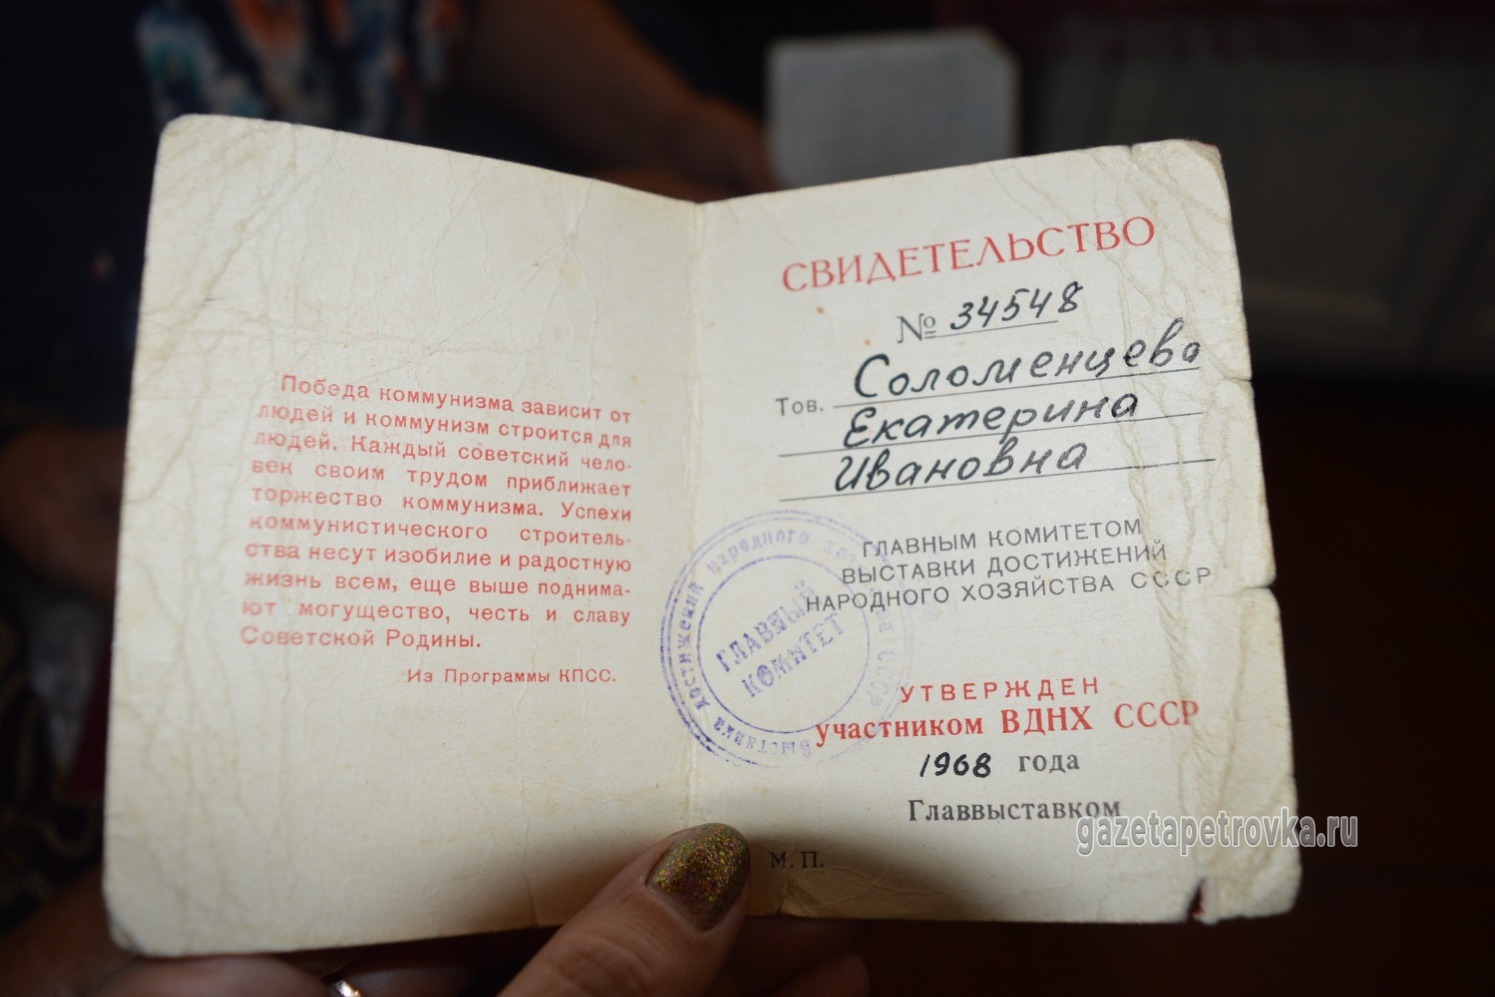 Победа коммунизма зависит от
людей и коммунизм строится для
людей. Каждый советский чело-
век своим трудом приближает
торжество коммунизма. Успехи
коммунистического строитель-
ства несут изобилие и радостную
жизнь всем, еще выше поднима-
ют могущество, честь и славу
Советской Родины.
Из Программы КПСС.
СВИДЕТЕЛЬСТВО
№ 34548
Тов. Соломенцева
Екатерина
Ивановна
ГЛАВНЫМ КОМИТЕТОМ
ВЫСТАВКИ ДОСТИЖЕНИЙ
НАРОДНОГО ХОЗЯЙСТВА СССР
УТВЕРЖДЕН
участником ВДНХ СССР
1968 года
Главвыставком
М. П.
Выставка достижений народного СССР
ГЛАВНЫЙ
КОМИТЕТ
gazetapetrovka.ru